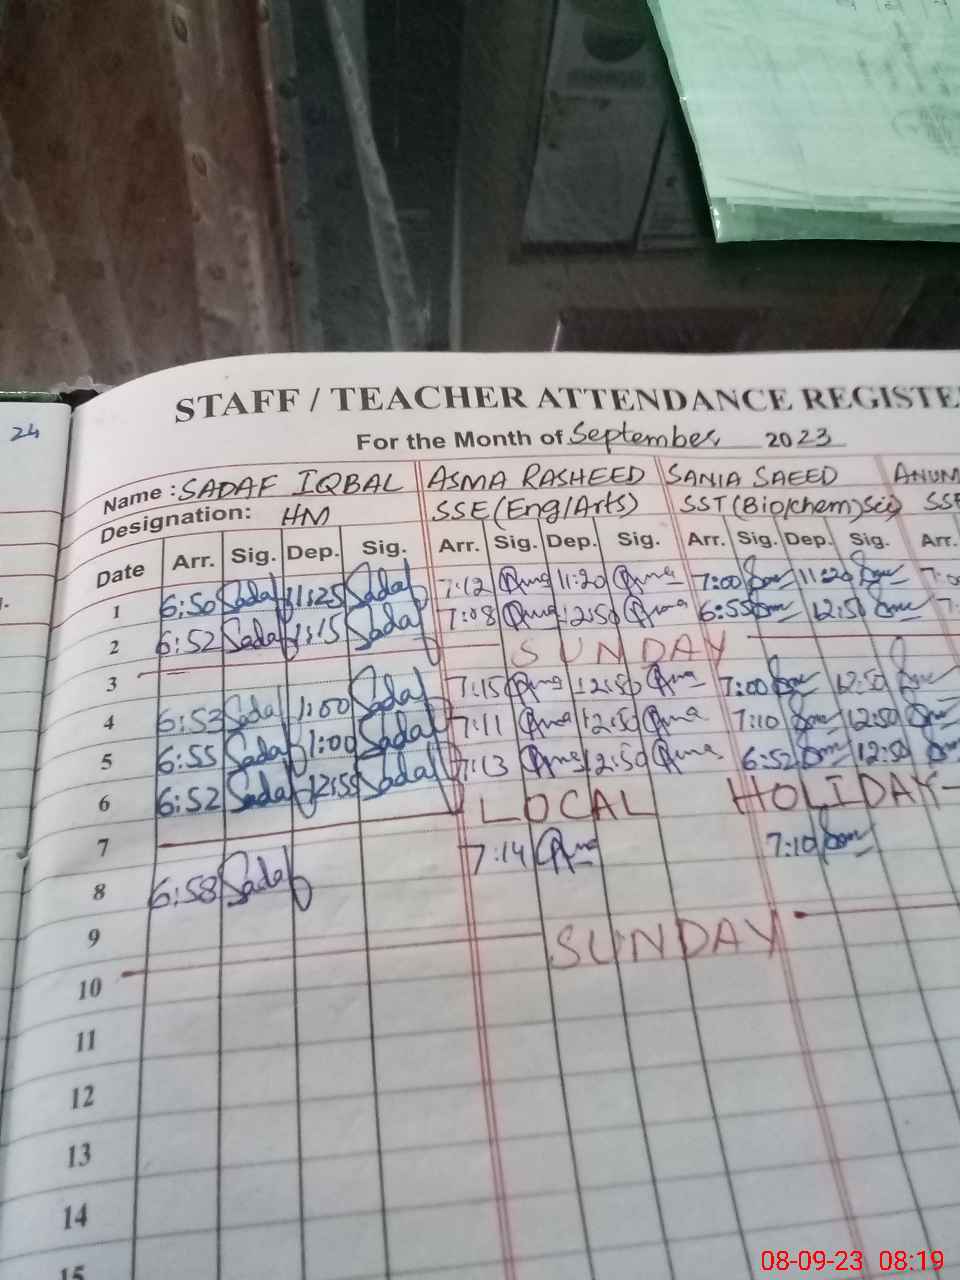 24
STAFF / TEACHER ATTENDANCE REGISTE
For the Month of September 2023
Name : SADAF IQBAL ASMA RASHEED SANIA SAEED ANUM
Designation: HM SSE (Eng/Arts) SST (Bio/chem) Sci) SSE
Date Arr. Sig. Dep. Sig. Arr. Sig. Dep. Sig. Arr. Sig. Dep. Sig. Arr.
1 6:50 Sadaf 11:25 Sadaf 7:12 11:20 7:00 11:20
2 6:52 Sadaf 1:15 Sadaf 7:08 12:50 6:55 12:50
3 SUNDAY
4 6:53 Sadaf 1:00 Sadaf 7:15 12:50 7:00 12:50
5 6:55 Sadaf 1:00 Sadaf 7:11 12:50 7:10 12:50
6 6:52 Sadaf 12:55 Sadaf 7:13 12:50 6:52 12:50
7 LOCAL HOLIDAY
8 6:58 Sadaf 7:14 7:10
9
10 SUNDAY
11
12
13
14
15
08-09-23 08:19